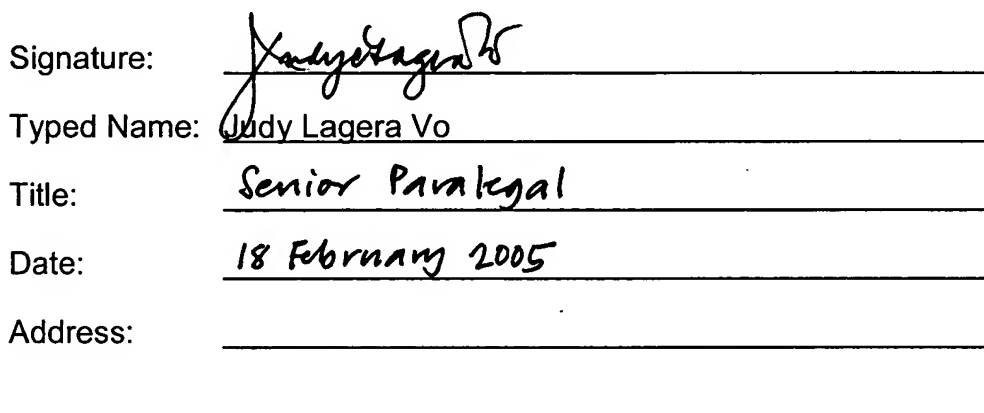 Signature: Judy Lagera Vo
Typed Name: Judy Lagera Vo
Title: Senior Paralegal
Date: 18 February 2005
Address: